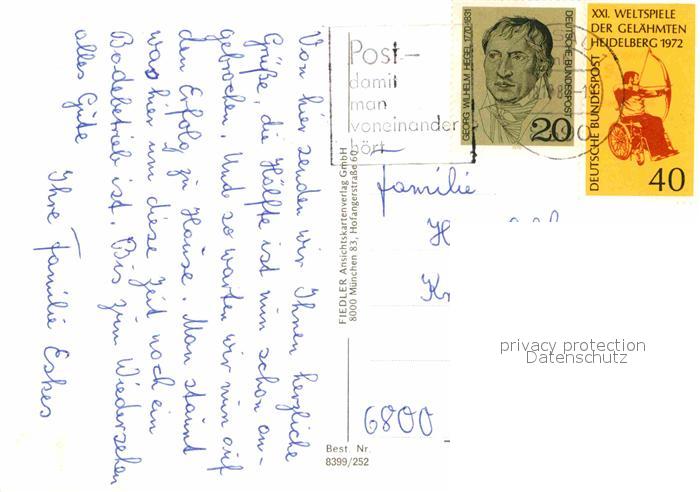 Von hier senden wir Ihnen herzliche
Grüße, die Hälfte ist nun schon an-
gebrochen. Und so warten wir nun auf
den Erfolg zu Hause. Man staunt
was hier um diese Zeit noch ein
Badebetrieb ist. Bis zum Wiedersehen
alles Gute
Ihre Familie Eskes
FIEDLER Ansichtskartenverlag GmbH
8000 München 83, Hofangerstraße 60
Best. Nr.
8399/252
Post-
damit
man
voneinander
hört
GEORG WILHELM HEGEL 1770-1831
DEUTSCHE BUNDESPOST
20
XXI. WELTSPIELE
DER GELÄHMTEN
HEIDELBERG 1972
DEUTSCHE BUNDESPOST
40
Familie
H
Kr
6800
privacy protection
Datenschutz